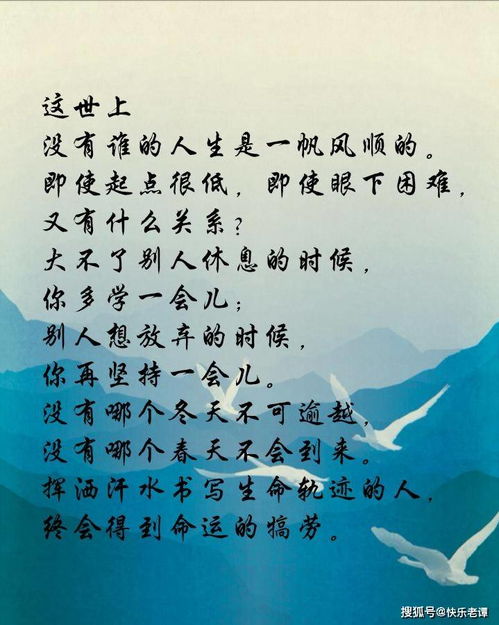 这世上
没有谁的人生是一帆风顺的。
即使起点很低，即使眼下困难，
又有什么关系？
大不了别人休息的时候，
你多学一会儿；
别人想放弃的时候，
你再坚持一会儿。
没有哪个冬天不可逾越，
没有哪个春天不会到来。
挥洒汗水书写生命轨迹的人，
终会得到命运的犒劳。
搜狐号@快乐老谭